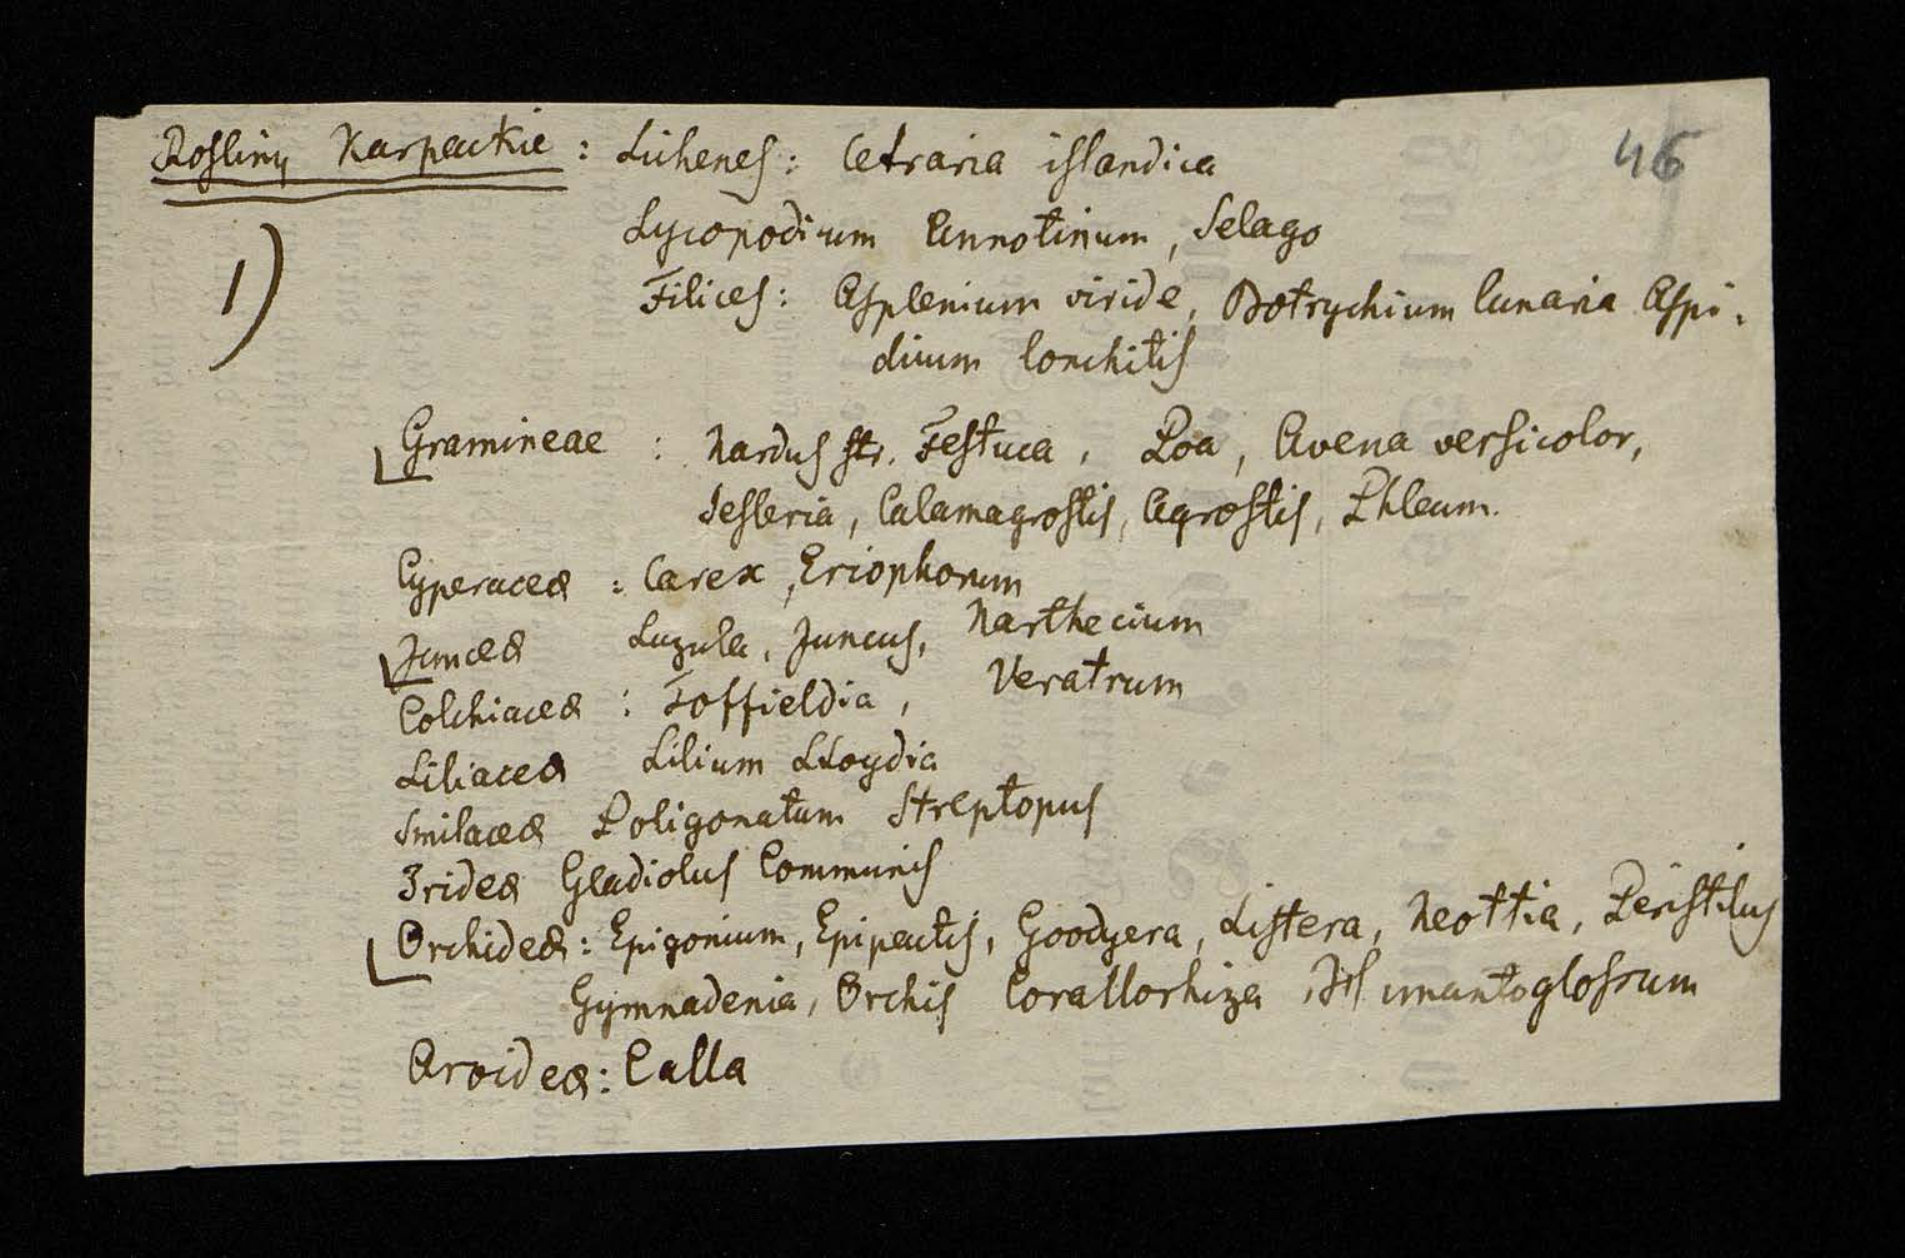 Rosliny Karpackie : Lichenes : Cetraria islandica
46
1)
Lycopodium Annotinum, Selago
Filices : Asplenium viride, Botrychium lunaria Aspi-
dium lonchitis
Gramineae : Nardus str. Festuca, Poa, Avena versicolor,
Sesleria, Calamagrostis, Agrostis, Phleum.
Cyperaceæ : Carex, Eriophorum
Junceæ Luzula, Juncus, Narthecium
Colchiaceæ : Toffieldia, Veratrum
Liliaceæ Lilium Lloydia
Smilaceæ Poligonatum Streptopus
Irideæ Gladiolus Communis
Orchideæ : Epigonium, Epipactis, Goodyera, Listera, Neottia, Peristilus
Gymnadenia, Orchis Corallorhiza, imantoglossum
Aroideæ : Calla